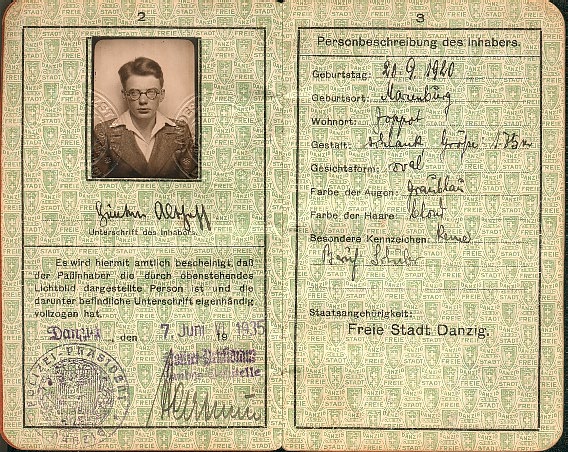 2
Unterschrift des Inhabers.
Es wird hiermit amtlich bescheinigt, daß
der Paßinhaber die durch obenstehendes
Lichtbild dargestellte Person ist und die
darunter befindliche Unterschrift eigenhändig
vollzogen hat.
Danzig, den 7. Juni 1935
POLIZEI-PRÄSIDENT
3
Personbeschreibung des Inhabers.
Geburtstag: 21.9.1920
Geburtsort: Marienburg
Wohnort: Zoppot
Gestalt: schlank Größe: 1.75 m
Gesichtsform: oval
Farbe der Augen: Graublau
Farbe der Haare: blond
Besondere Kennzeichen: keine
Beruf Schüler
Staatsangehörigkeit:
Freie Stadt Danzig.